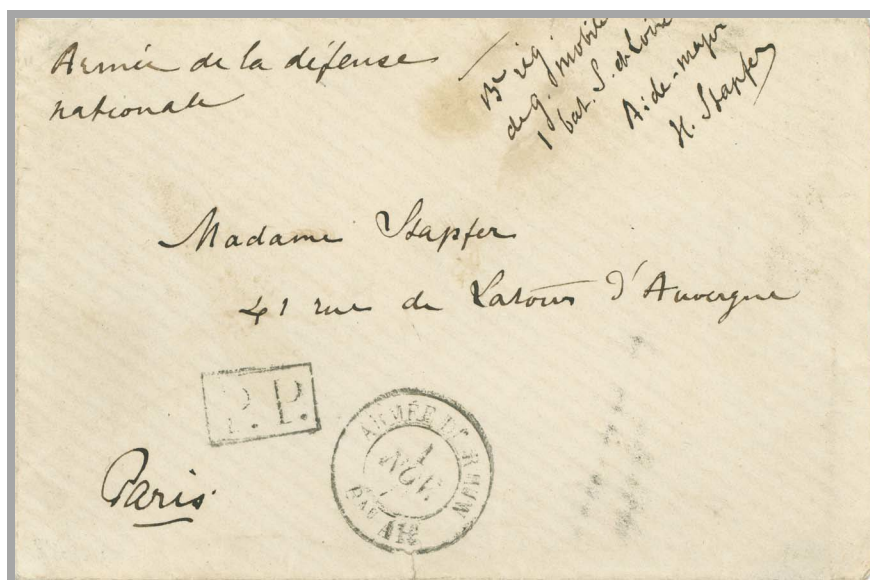 Armée de la défense
nationale
13e rég.
de g. mobile
1 bat. S. et Loire
Aide-major
H. Stapfer
Madame Stapfer
41 rue de Latour d'Auvergne
P.P.
ARMÉE DU RHIN
1
NOV.
Paris